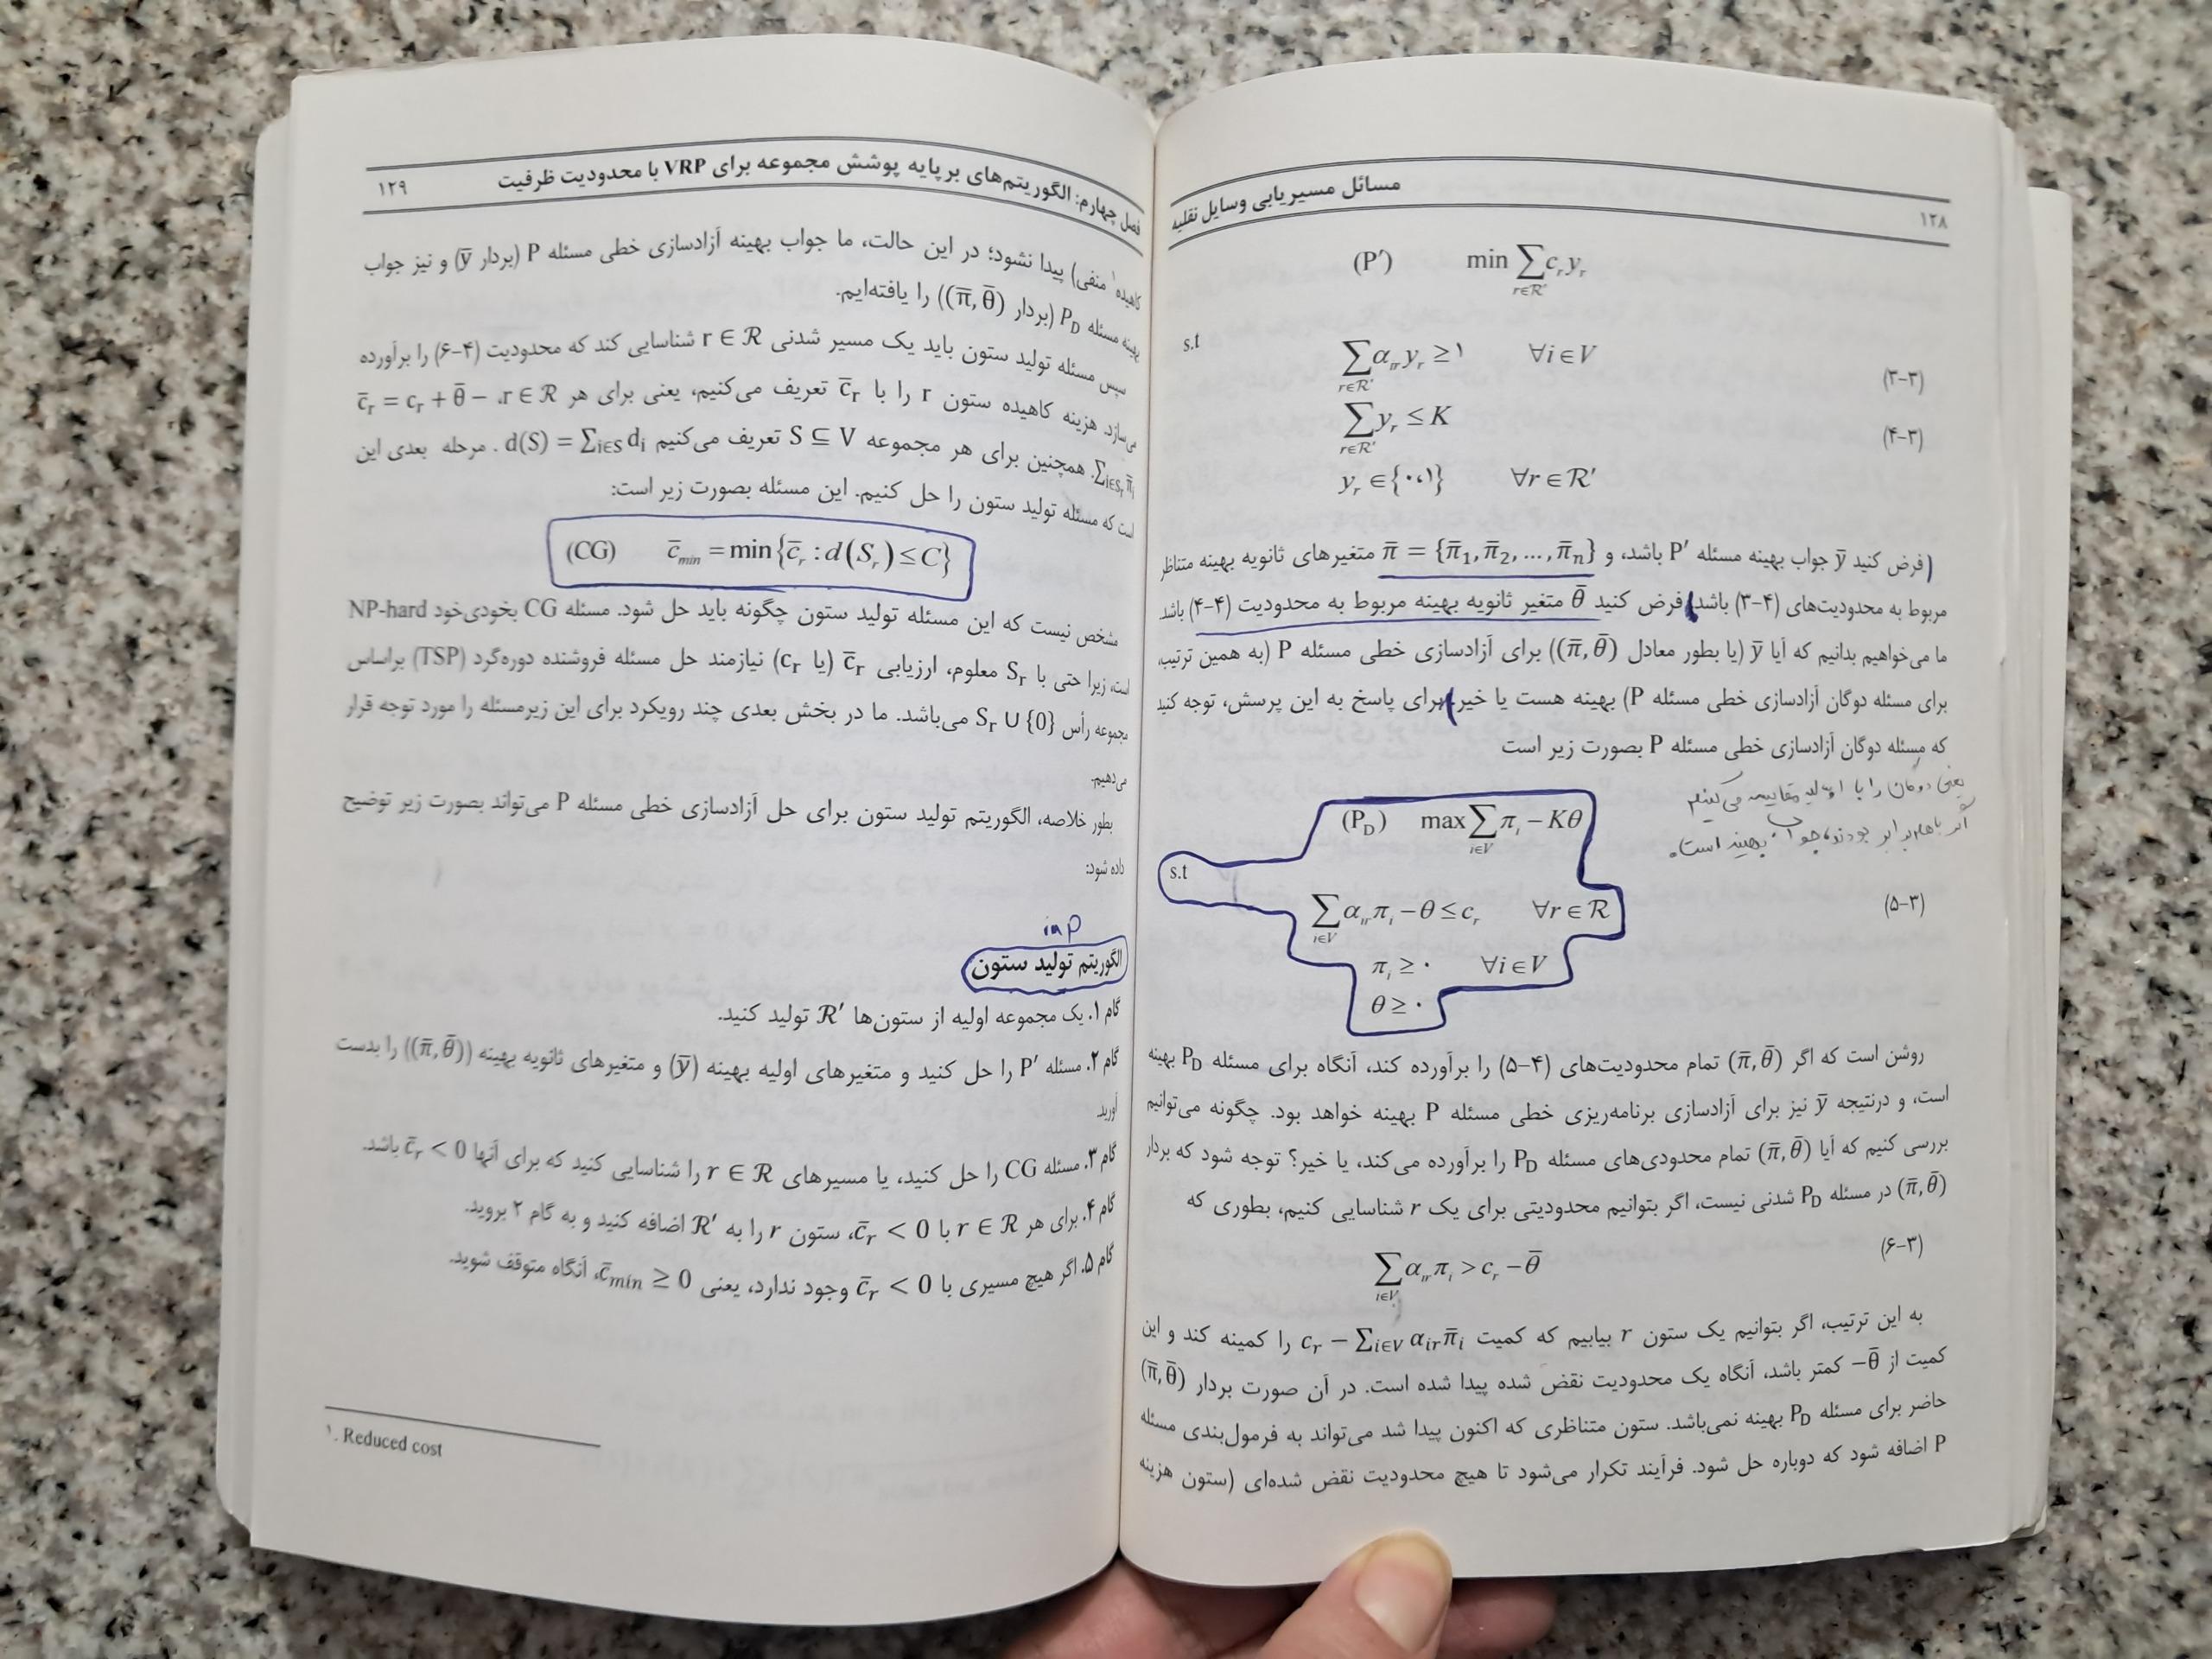 ۱۲۸
مسائل مسیریابی وسایل نقلیه
(P′) min ∑_{r∈ℛ′} c_r y_r
s.t
∑_{r∈ℛ′} α_{ir} y_r ≥ ۱ ∀i∈V (۳-۳)
∑_{r∈ℛ′} y_r ≤ K (۴-۳)
y_r ∈ {۰،۱} ∀r∈ℛ′
فرض کنید ȳ جواب بهینه مسئله P′ باشد، و π̄ = {π̄1, π̄2, …, π̄n} متغیرهای ثانویه بهینه متناظر
مربوط به محدودیت‌های (۴-۳) باشد. فرض کنید θ̄ متغیر ثانویه بهینه مربوط به محدودیت (۴-۴) باشد.
ما می‌خواهیم بدانیم که آیا ȳ (یا بطور معادل (π̄, θ̄)) برای آزادسازی خطی مسئله P (به همین ترتیب،
برای مسئله دوگان آزادسازی خطی مسئله P) بهینه هست یا خیر. برای پاسخ به این پرسش، توجه کنید
که مسئله دوگان آزادسازی خطی مسئله P بصورت زیر است
یعنی دوگان را با اولیه مقایسه می‌کنیم
اگر باهم برابر بودند، جواب بهینه است.
(P_D) max ∑_{i∈V} π_i − Kθ
s.t
∑_{i∈V} α_{ir} π_i − θ ≤ c_r ∀r∈ℛ (۵-۳)
π_i ≥ ۰ ∀i∈V
θ ≥ ۰
روشن است که اگر (π̄, θ̄) تمام محدودیت‌های (۴-۵) را برآورده کند، آنگاه برای مسئله P_D بهینه
است، و درنتیجه ȳ نیز برای آزادسازی برنامه‌ریزی خطی مسئله P بهینه خواهد بود. چگونه می‌توانیم
بررسی کنیم که آیا (π̄, θ̄) تمام محدودی‌های مسئله P_D را برآورده می‌کند، یا خیر؟ توجه شود که بردار
(π̄, θ̄) در مسئله P_D شدنی نیست، اگر بتوانیم محدودیتی برای یک r شناسایی کنیم، بطوری که
∑_{i∈V} α_{ir} π_i > c_r − θ̄ (۶-۳)
به این ترتیب، اگر بتوانیم یک ستون r بیابیم که کمیت c_r − ∑_{i∈V} α_{ir} π̄_i را کمینه کند و این
کمیت از −θ̄ کمتر باشد، آنگاه یک محدودیت نقض شده پیدا شده است. در آن صورت بردار (π̄, θ̄)
حاضر برای مسئله P_D بهینه نمی‌باشد. ستون متناظری که اکنون پیدا شد می‌تواند به فرمول‌بندی مسئله
P اضافه شود که دوباره حل شود. فرآیند تکرار می‌شود تا هیچ محدودیت نقض شده‌ای (ستون هزینه
فصل چهارم: الگوریتم‌های بر پایه پوشش مجموعه برای VRP با محدودیت ظرفیت
۱۲۹
کاهیده۱ منفی) پیدا نشود؛ در این حالت، ما جواب بهینه آزادسازی خطی مسئله P (بردار ȳ) و نیز جواب
بهینه مسئله P_D (بردار (π̄, θ̄)) را یافته‌ایم.
سپس مسئله تولید ستون باید یک مسیر شدنی r ∈ ℛ شناسایی کند که محدودیت (۴-۶) را برآورده
می‌سازد. هزینه کاهیده ستون r را با c̄_r تعریف می‌کنیم، یعنی برای هر r ∈ ℛ، c̄_r = c_r + θ̄ −
∑_{i∈S_r} π̄_i. همچنین برای هر مجموعه S ⊆ V تعریف می‌کنیم d(S) = ∑_{i∈S} d_i . مرحله بعدی این
است که مسئله تولید ستون را حل کنیم. این مسئله بصورت زیر است:
(CG) c̄_min = min{c̄_r : d(S_r) ≤ C}
مشخص نیست که این مسئله تولید ستون چگونه باید حل شود. مسئله CG بخودی‌خود NP-hard
است، زیرا حتی با S_r معلوم، ارزیابی c̄_r (یا c_r) نیازمند حل مسئله فروشنده دوره‌گرد (TSP) براساس
مجموعه رأس S_r ∪ {0} می‌باشد. ما در بخش بعدی چند رویکرد برای این زیرمسئله را مورد توجه قرار
می‌دهیم.
بطور خلاصه، الگوریتم تولید ستون برای حل آزادسازی خطی مسئله P می‌تواند بصورت زیر توضیح
داده شود:
imp
الگوریتم تولید ستون
گام ۱. یک مجموعه اولیه از ستون‌ها ℛ′ تولید کنید.
گام ۲. مسئله P′ را حل کنید و متغیرهای اولیه بهینه (ȳ) و متغیرهای ثانویه بهینه ((π̄, θ̄)) را بدست
آورید.
گام ۳. مسئله CG را حل کنید، یا مسیرهای r ∈ ℛ را شناسایی کنید که برای آنها c̄_r < 0 باشد.
گام ۴. برای هر r ∈ ℛ با c̄_r < 0، ستون r را به ℛ′ اضافه کنید و به گام ۲ بروید.
گام ۵. اگر هیچ مسیری با c̄_r < 0 وجود ندارد، یعنی c̄_min ≥ 0، آنگاه متوقف شوید.
۱. Reduced cost